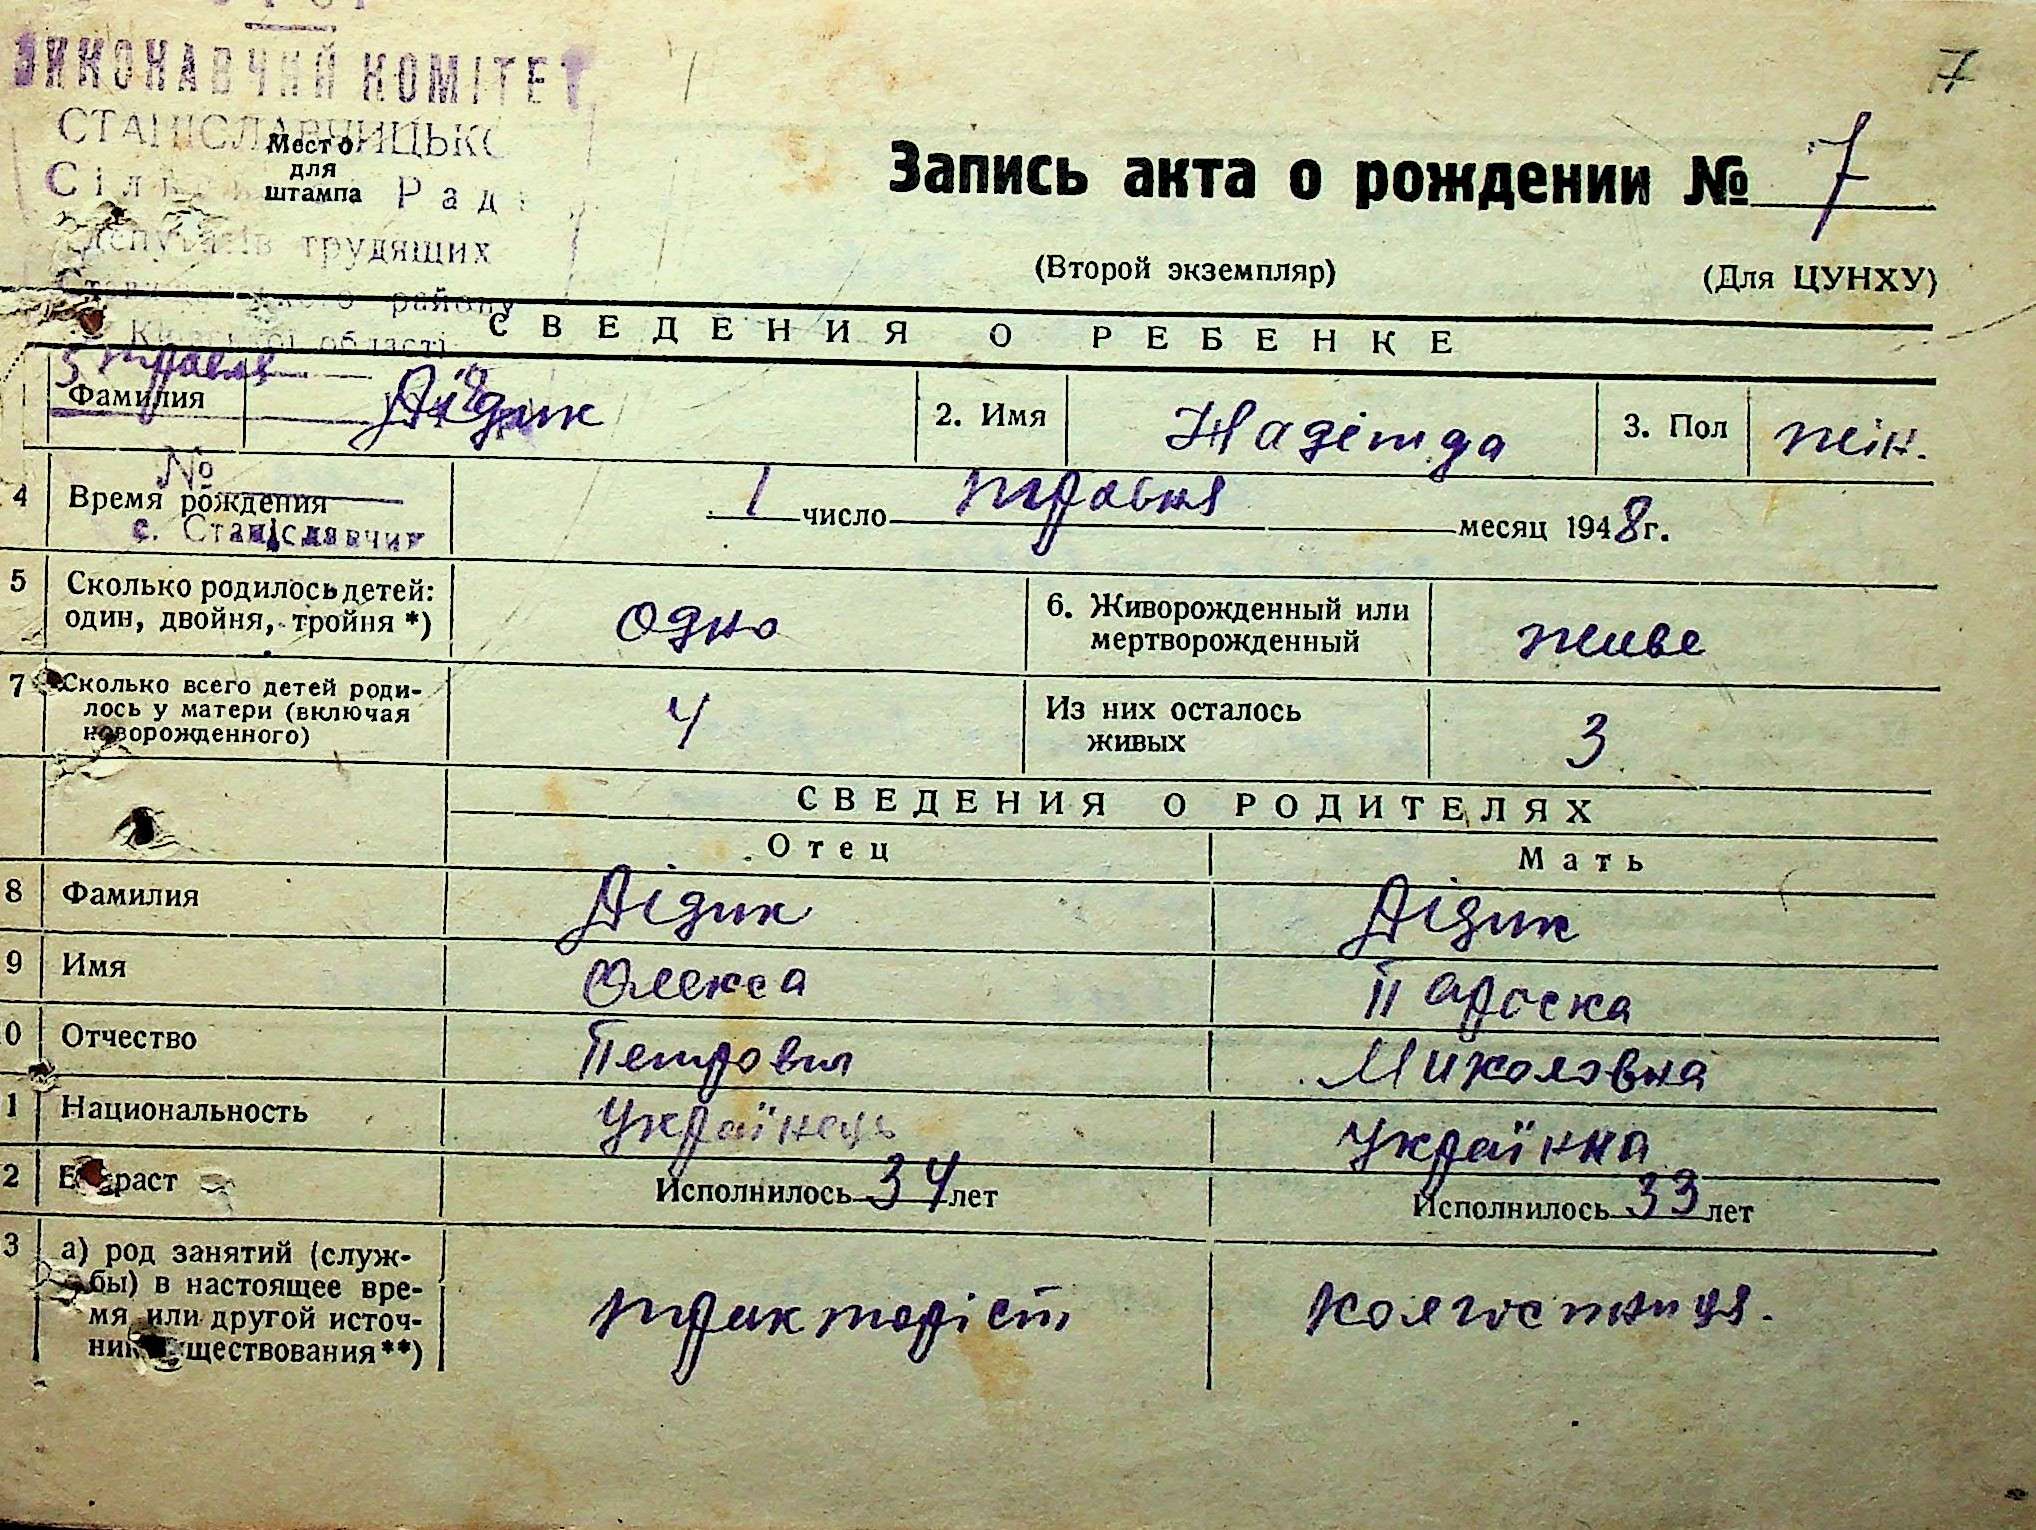 7
ВИКОНАВЧИЙ КОМІТЕТ
СТАНІСЛАВЧИЦЬКО
Сіл Рад
депутатів трудящих
району
Київської області
5 травня
Место
для
штампа
Запись акта о рождении № 7
(Второй экземпляр) (Для ЦУНХУ)
СВЕДЕНИЯ О РЕБЕНКЕ
Фамилия Дідик 2. Имя Надіжда 3. Пол жін.
№
4 Время рождения 1 число травня месяц 1948г.
с. Станіславчик
5 Сколько родилось детей: один, двойня, тройня *) одно 6. Живорожденный или мертворожденный живе
7 Сколько всего детей роди-
лось у матери (включая
новорожденного) 4 Из них осталось живых 3
СВЕДЕНИЯ О РОДИТЕЛЯХ
Отец Мать
8 Фамилия Дідик Дідик
9 Имя Олекса Параска
0 Отчество Петрович Миколовна
1 Национальность Українець Українка
2 Возраст Исполнилось 34 лет Исполнилось 33 лет
3 а) род занятий (служ-
бы) в настоящее вре-
мя или другой источ-
ник существования**) тракторіст колгостниця.